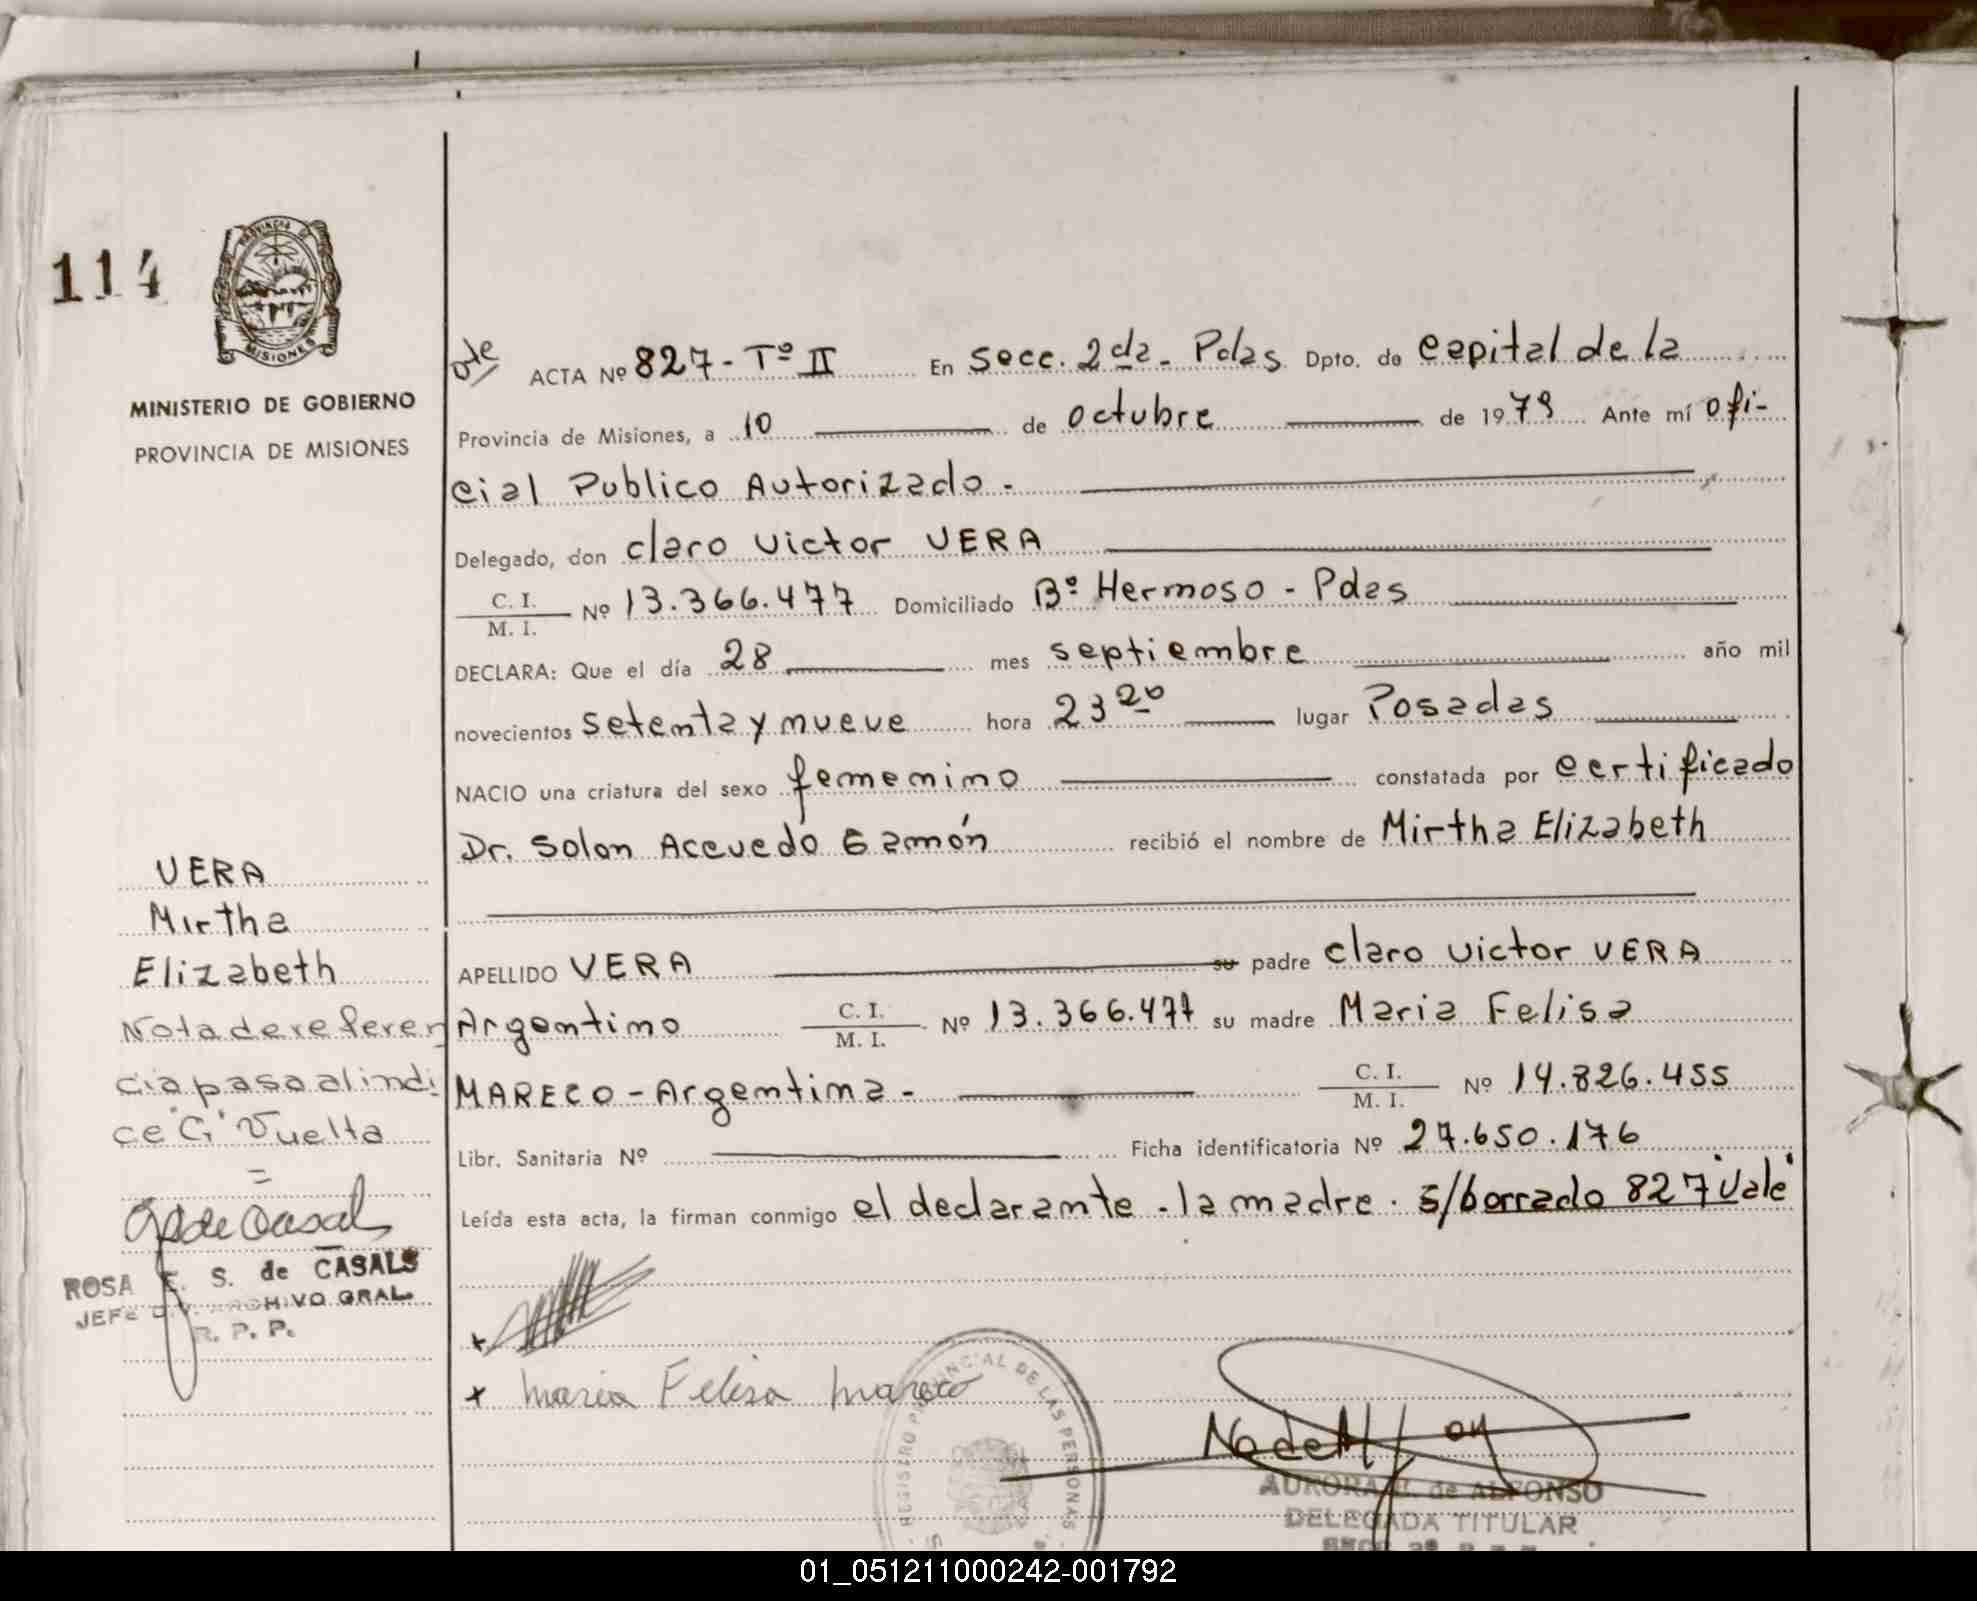 114
PROVINCIA DE
MISIONES
MINISTERIO DE GOBIERNO
PROVINCIA DE MISIONES
ACTA Nº 827 - Tº II En Secc. 2da - Pdas Dpto. de Capital de la
Provincia de Misiones, a 10 de Octubre de 1979 Ante mí Ofi-
cial Publico Autorizado.
Delegado, don Claro Victor VERA
C. I.
M. I. Nº 13.366.477 Domiciliado Bº Hermoso - Pdas
DECLARA: Que el día 28 mes septiembre año mil
novecientos setenta y nueve hora 23 20 lugar Posadas
NACIO una criatura del sexo femenino constatada por certificado
Dr. Solon Acevedo Gamón recibió el nombre de Mirtha Elizabeth
APELLIDO VERA su padre Claro Victor VERA
Argentino C. I.
M. I. Nº 13.366.477 su madre Maria Felisa
MARECO - Argentina - C. I.
M. I. Nº 14.826.455
Libr. Sanitaria Nº Ficha identificatoria Nº 27.650.176
Leída esta acta, la firman conmigo el declarante - la madre. s/borrado 827 "Vale"
VERA
Mirtha
Elizabeth
Nota de referen
cia pasa al indi
ce "G" Vuelta
ROSA E. S. de CASALS
JEFE DIV. ARCHIVO GRAL.
R. P. P.
x
x Maria Felisa Mareco
REGISTRO PROVINCIAL DE LAS PERSONAS
AURORA N. de ALFONSO
DELEGADA TITULAR
01_051211000242-001792